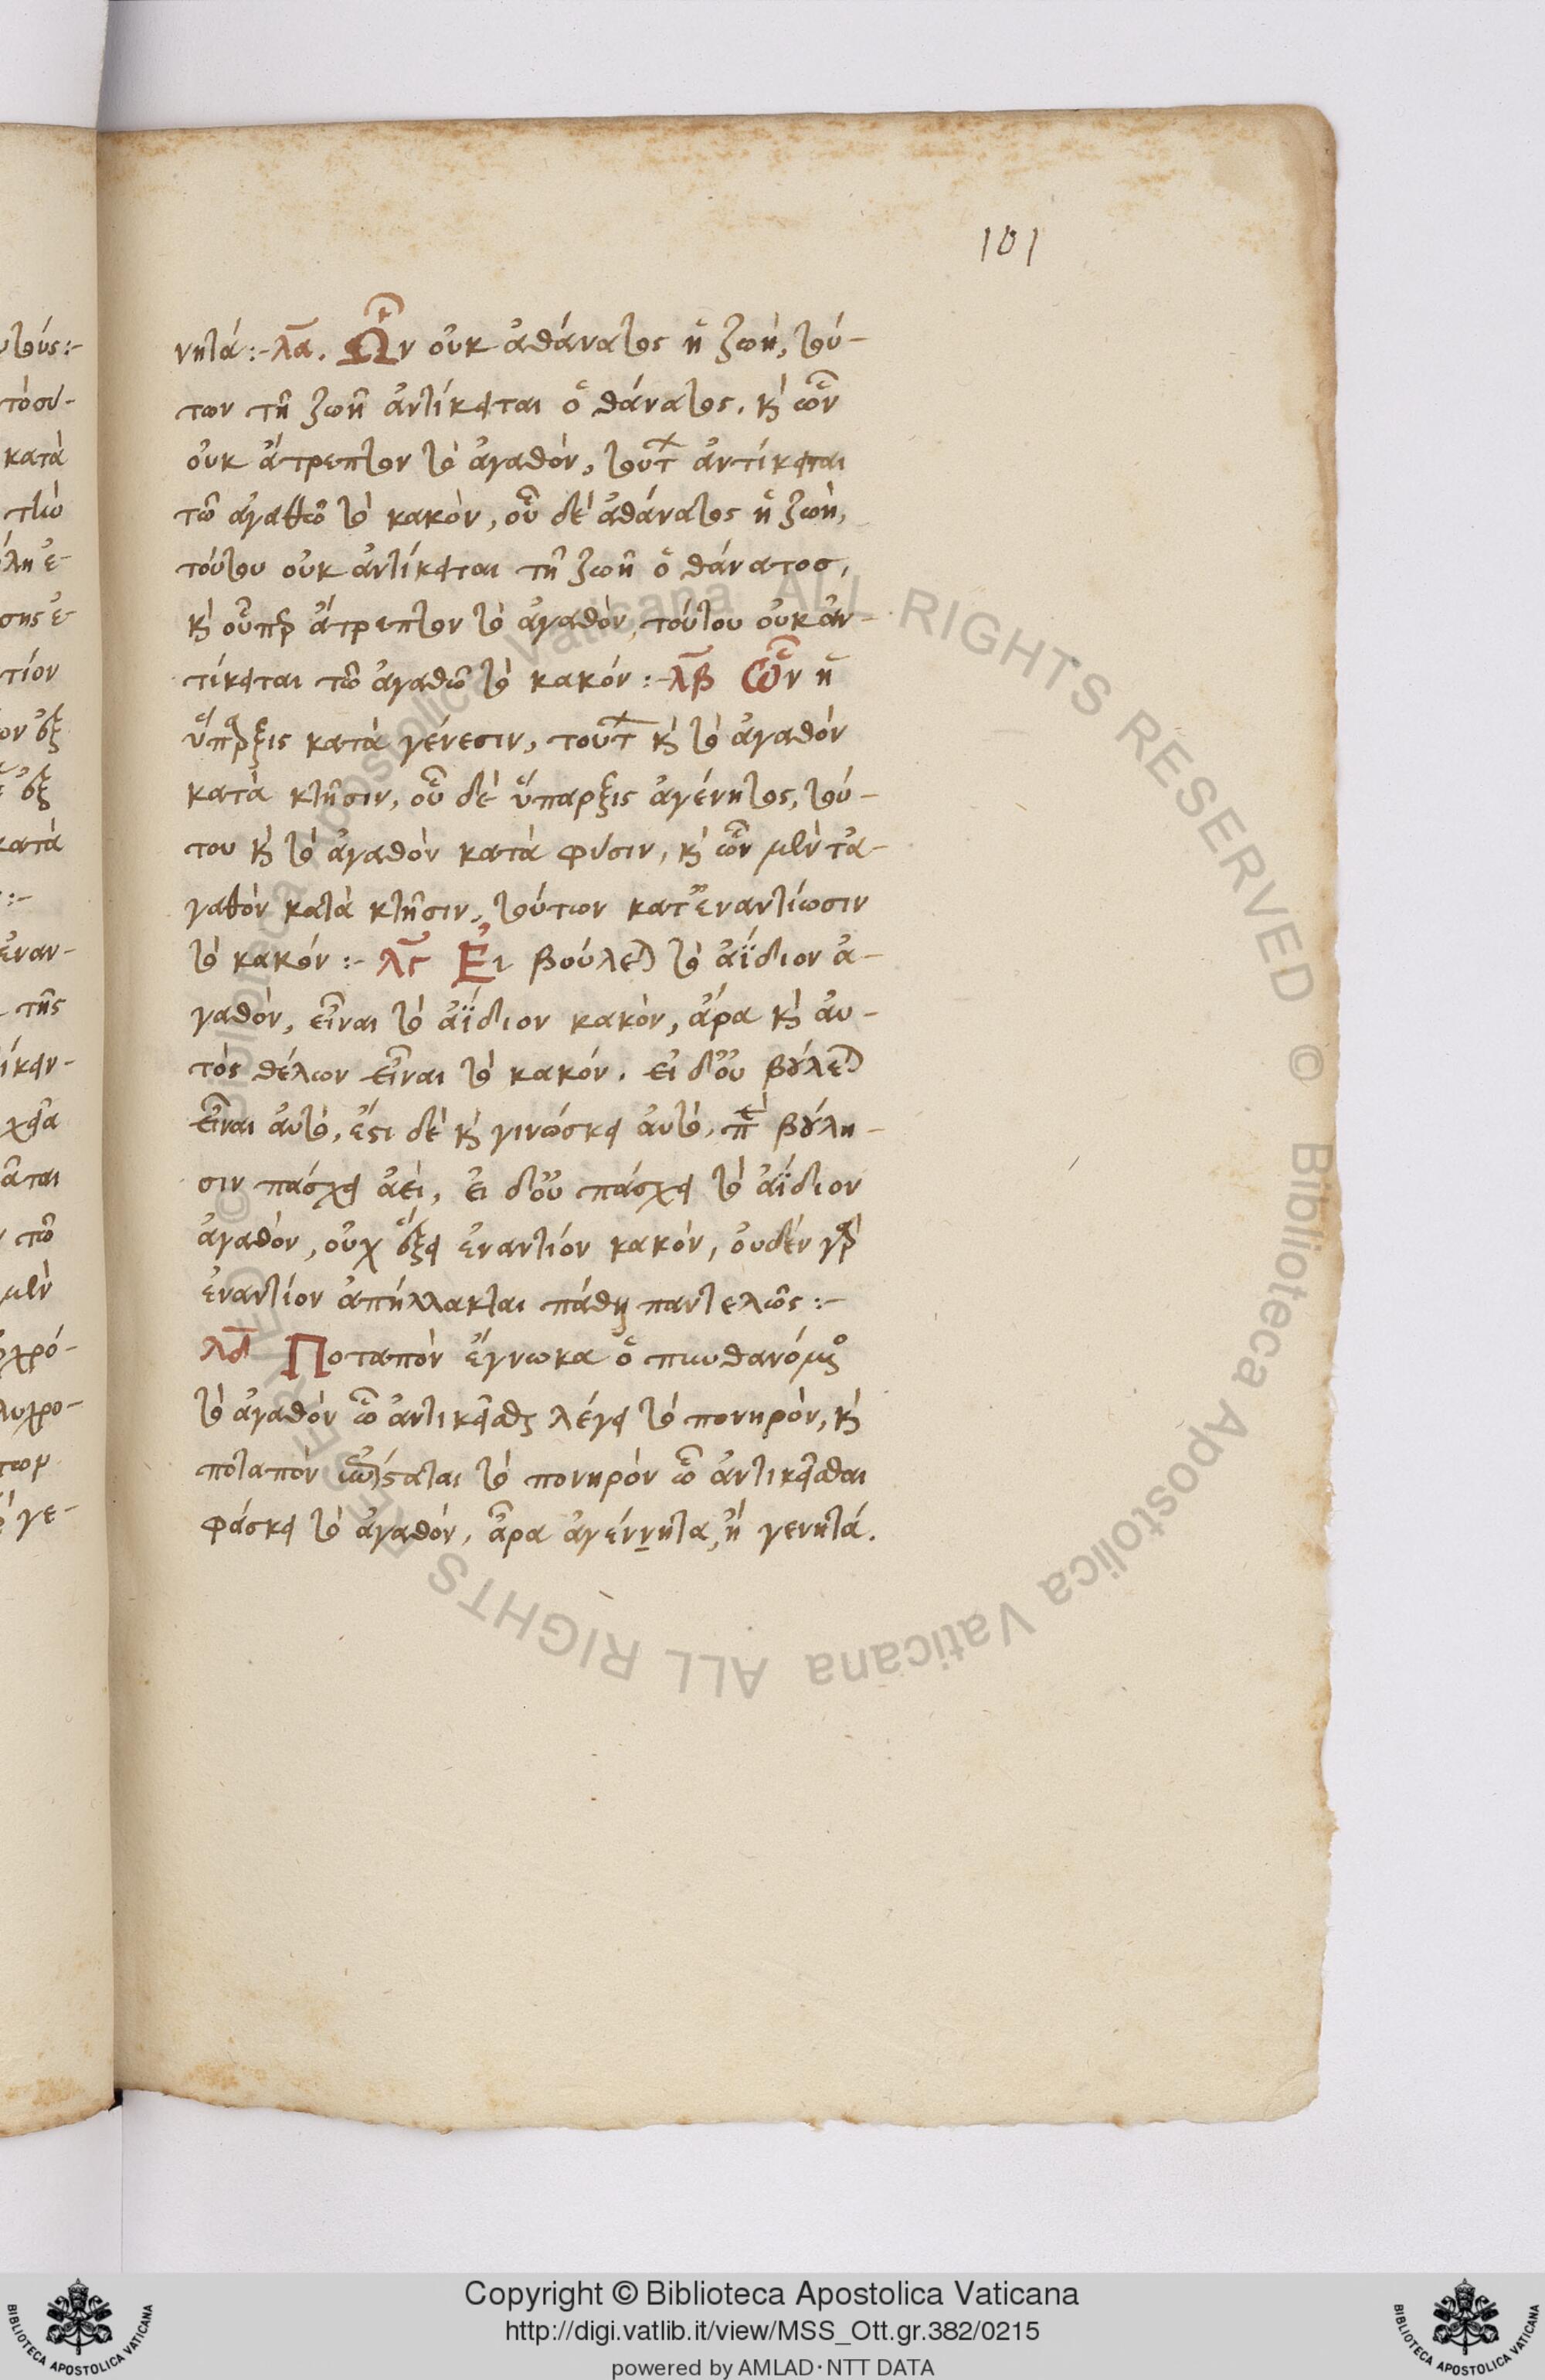 101
νητά:- λα. Ὧν οὐκ ἀθάνατος ἡ ζωὴ, τού-
των τῆ ζωῆ ἀντίκειται ὁ θάνατος. κὶ ὧν
οὐκ ἄτρεπτον τὸ ἀγαθὸν, τουτ ἀντίκειται
τῶ ἀγαθῶ τὸ κακὸν, οὗ δὲ ἀθάνατος ἡ ζωὴ,
τούτου οὐκ ἀντίκειται τῆ ζωῆ ὁ θάνατοσ,
κὶ οὗπερ ἄτρεπτον τὸ ἀγαθὸν, τούτου οὐκ ἀν-
τίκειται τῶ ἀγαθῶ τὸ κακόν:- λβ Ὧν ἡ
ὕπαρξις κατὰ γένεσιν, τουτ κὶ τὸ ἀγαθὸν
κατὰ κτῆσιν, οὗ δὲ ὕπαρξις ἀγένητος, τού-
του κὶ τὸ ἀγαθὸν κατὰ φύσιν, κὶ ὧν μὲν τἀ-
γαθὸν κατὰ κτῆσιν, τούτων κατ' ἐναντίωσιν
τὸ κακόν:- λγ Εἰ βούλεται τὸ ἀΐδιον ἀ-
γαθὸν, εἶναι τὸ ἀΐδιον κακὸν, ἄρα κὶ αὐ-
τὸς θέλων εἶναι τὸ κακόν. εἰ δ' οὐ βούλεται
εἶναι αὐτὸ, ἔστι δὲ κὶ γινώσκει αὐτὸ, περὶ βούλη-
σιν πάσχει ἀεὶ, εἰ δ' οὐ πάσχει τὸ ἀΐδιον
ἀγαθὸν, οὐχ ἕξει ἐναντίον κακὸν, οὐδὲν γὰρ
ἐναντίον ἀπήλλακται πάθους παντελῶς:-
λδ Ποταπὸν ἔγνωκα ὁ πυνθανόμενος
τὸ ἀγαθὸν ὧ ἀντικεῖσθαι λέγει τὸ πονηρὸν, κὶ
ποταπὸν τὸ πονηρὸν ὧ ἀντικεῖσθαι
φάσκει τὸ ἀγαθόν, ἆρα ἀγέννητα, ἢ γενητά.
Copyright © Biblioteca Apostolica Vaticana
http://digi.vatlib.it/view/MSS_Ott.gr.382/0215
powered by AMLAD·NTT DATA